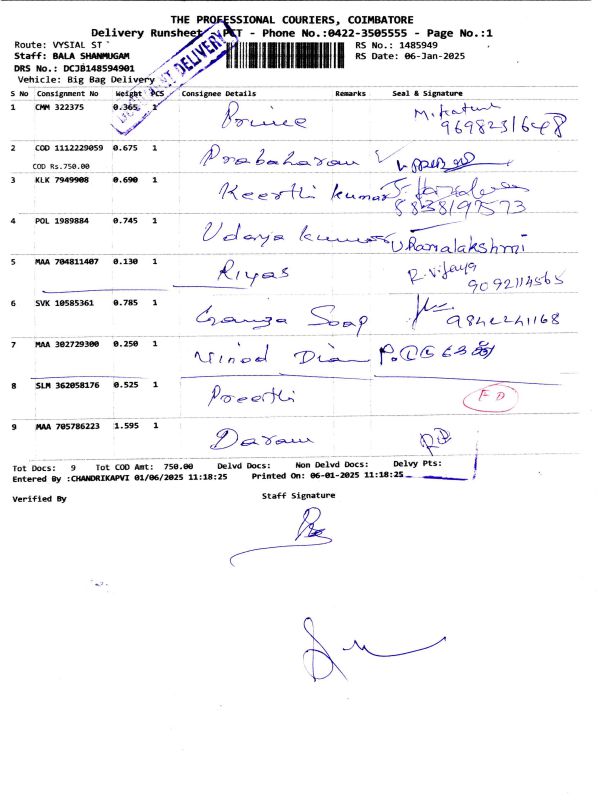 THE PROFESSIONAL COURIERS, COIMBATORE
Delivery Runsheet - PCT - Phone No.:0422-3505555 - Page No.:1
Route: VYSIAL ST RS No.: 1485949
Staff: BALA SHANMUGAM RS Date: 06-Jan-2025
DRS No.: DCJB148594901
Vehicle: Big Bag Delivery
DELIVERY
S No Consignment No Weight PCS Consignee Details Remarks Seal & Signature
1 CMM 322375 0.365 1 Prince
9698231648
2 COD 1112229059 0.675 1 Prabaharan
COD Rs.750.00
3 KLK 7949908 0.690 1 Keerthi kumar
8838197573
4 POL 1989884 0.745 1 Udaya kumar V.Ramalakshmi
5 MAA 704811407 0.130 1 Riyas R. Vijaya
9092114565
6 SVK 10585361 0.785 1 Soap
9842241168
7 MAA 302729300 0.250 1 Vinod
8 SLM 362058176 0.525 1 Preethi FD
9 MAA 705786223 1.595 1
Tot Docs: 9 Tot COD Amt: 750.00 Delvd Docs: Non Delvd Docs: Delvy Pts:
Entered By :CHANDRIKAPVI 01/06/2025 11:18:25 Printed On: 06-01-2025 11:18:25
Verified By Staff Signature